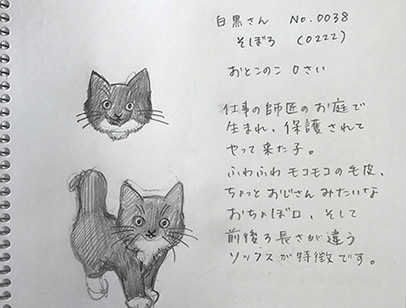 白黒さん No.0038
そぼろ (0222)
おとこのこ 0さい
仕事の師匠のお庭で
生まれ、保護されて
やって来た子。
ふわふわモコモコの毛皮、
ちょっとおじさんみたいな
おちょぼ口、そして
前後ろ長さが違う
ソックスが特徴です。